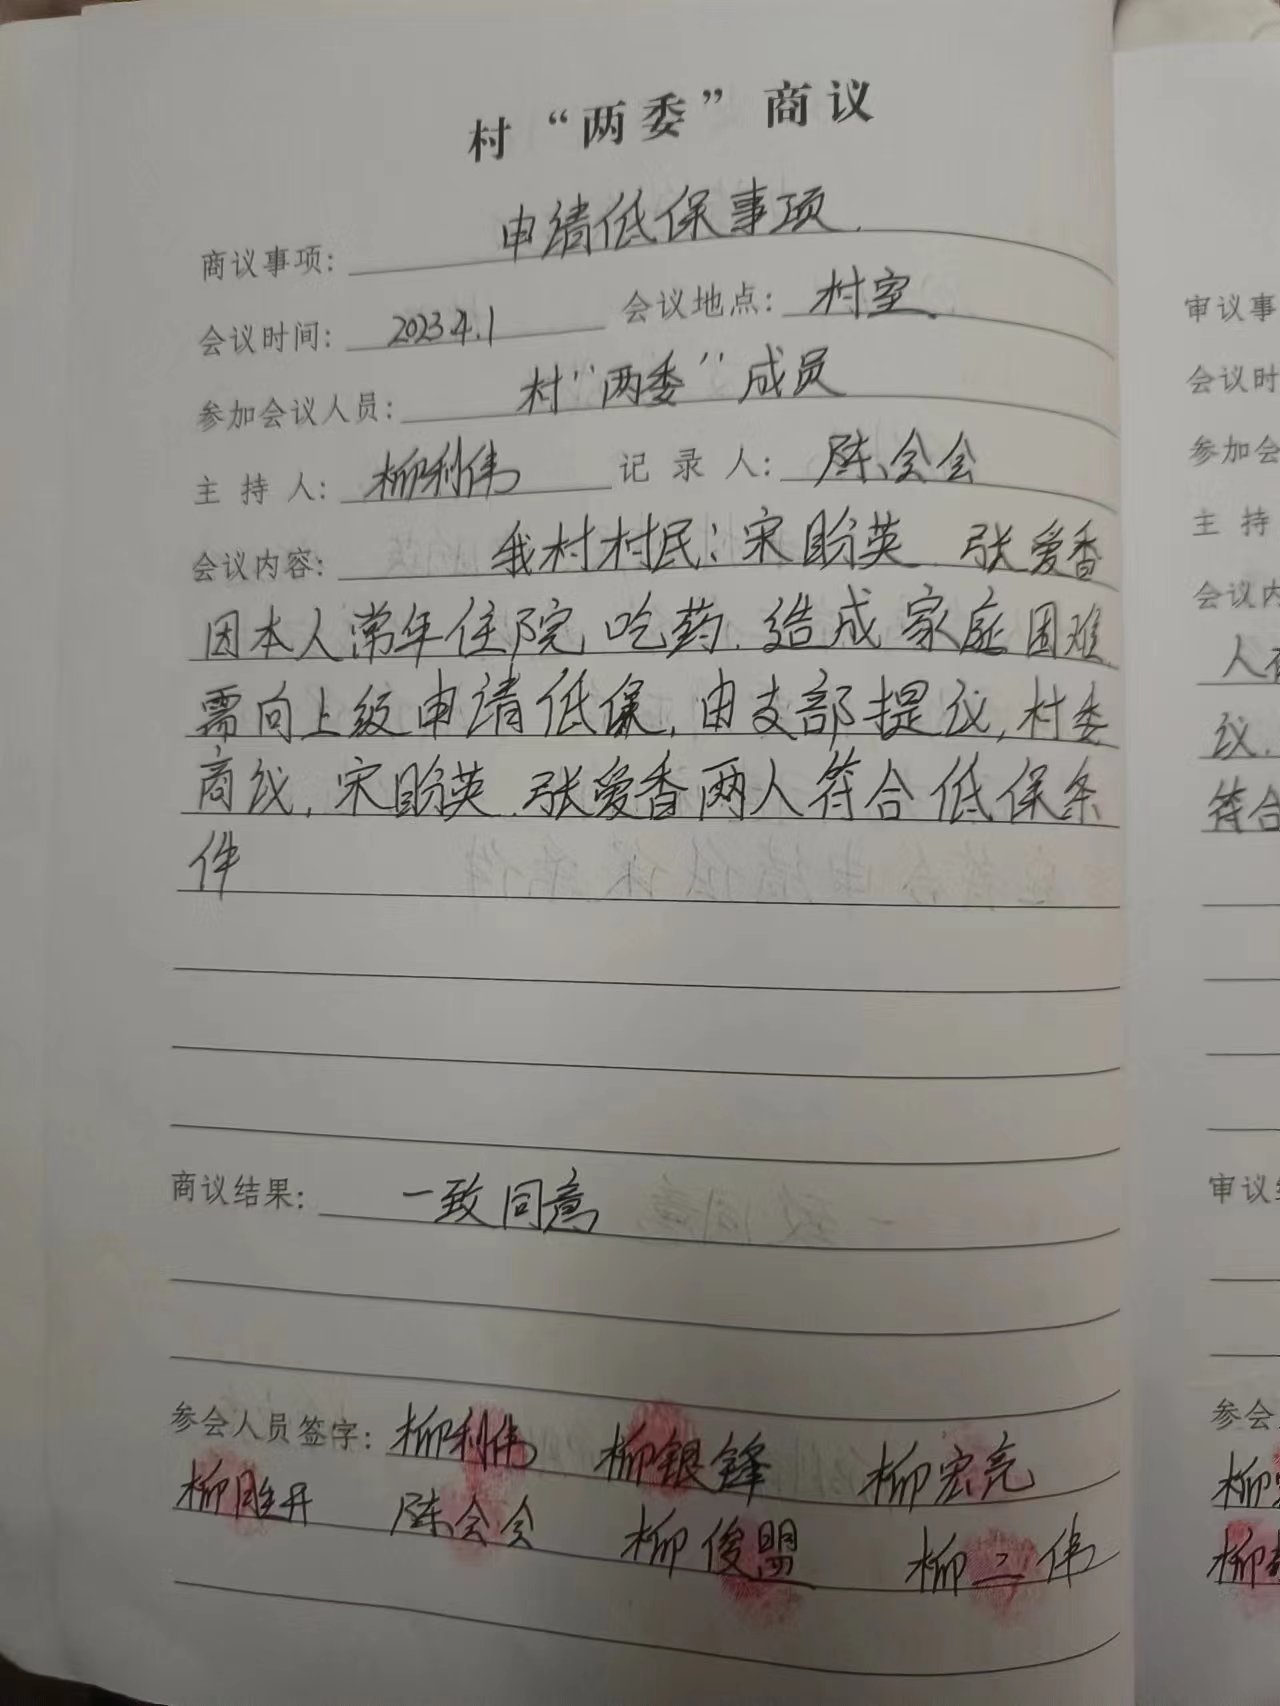 村“两委”商议
商议事项: 申请低保事项.
会议时间: 2023.4.1 会议地点: 村室.
参加会议人员: 村“两委”成员
主持人: 柳利伟 记录人: 陈会会
会议内容: 我村村民: 宋盼英 张爱香
因本人常年住院, 吃药. 造成家庭困难.
需向上级申请低保, 由支部提议, 村委
商议, 宋盼英. 张爱香两人符合低保条
件
商议结果: 一致同意
参会人员签字: 柳利伟 柳银锋 柳宏亮
柳胜开 陈会会 柳俊盟 柳二伟
审议事
会议时
参加会
主持
会议内
议.
符合
审议结
参会